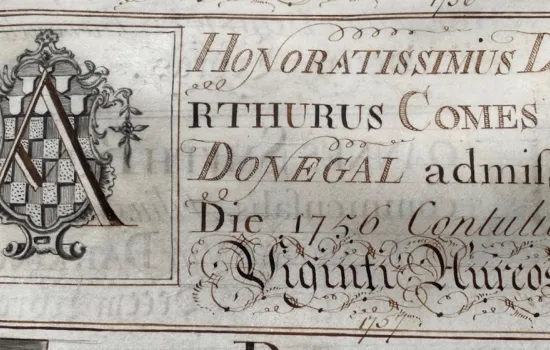 1756
HONORATISSIMUS D
ARTHURUS COMES
DONEGAL admiss
Die 1756 Contulit
Viginti Aureos
1757